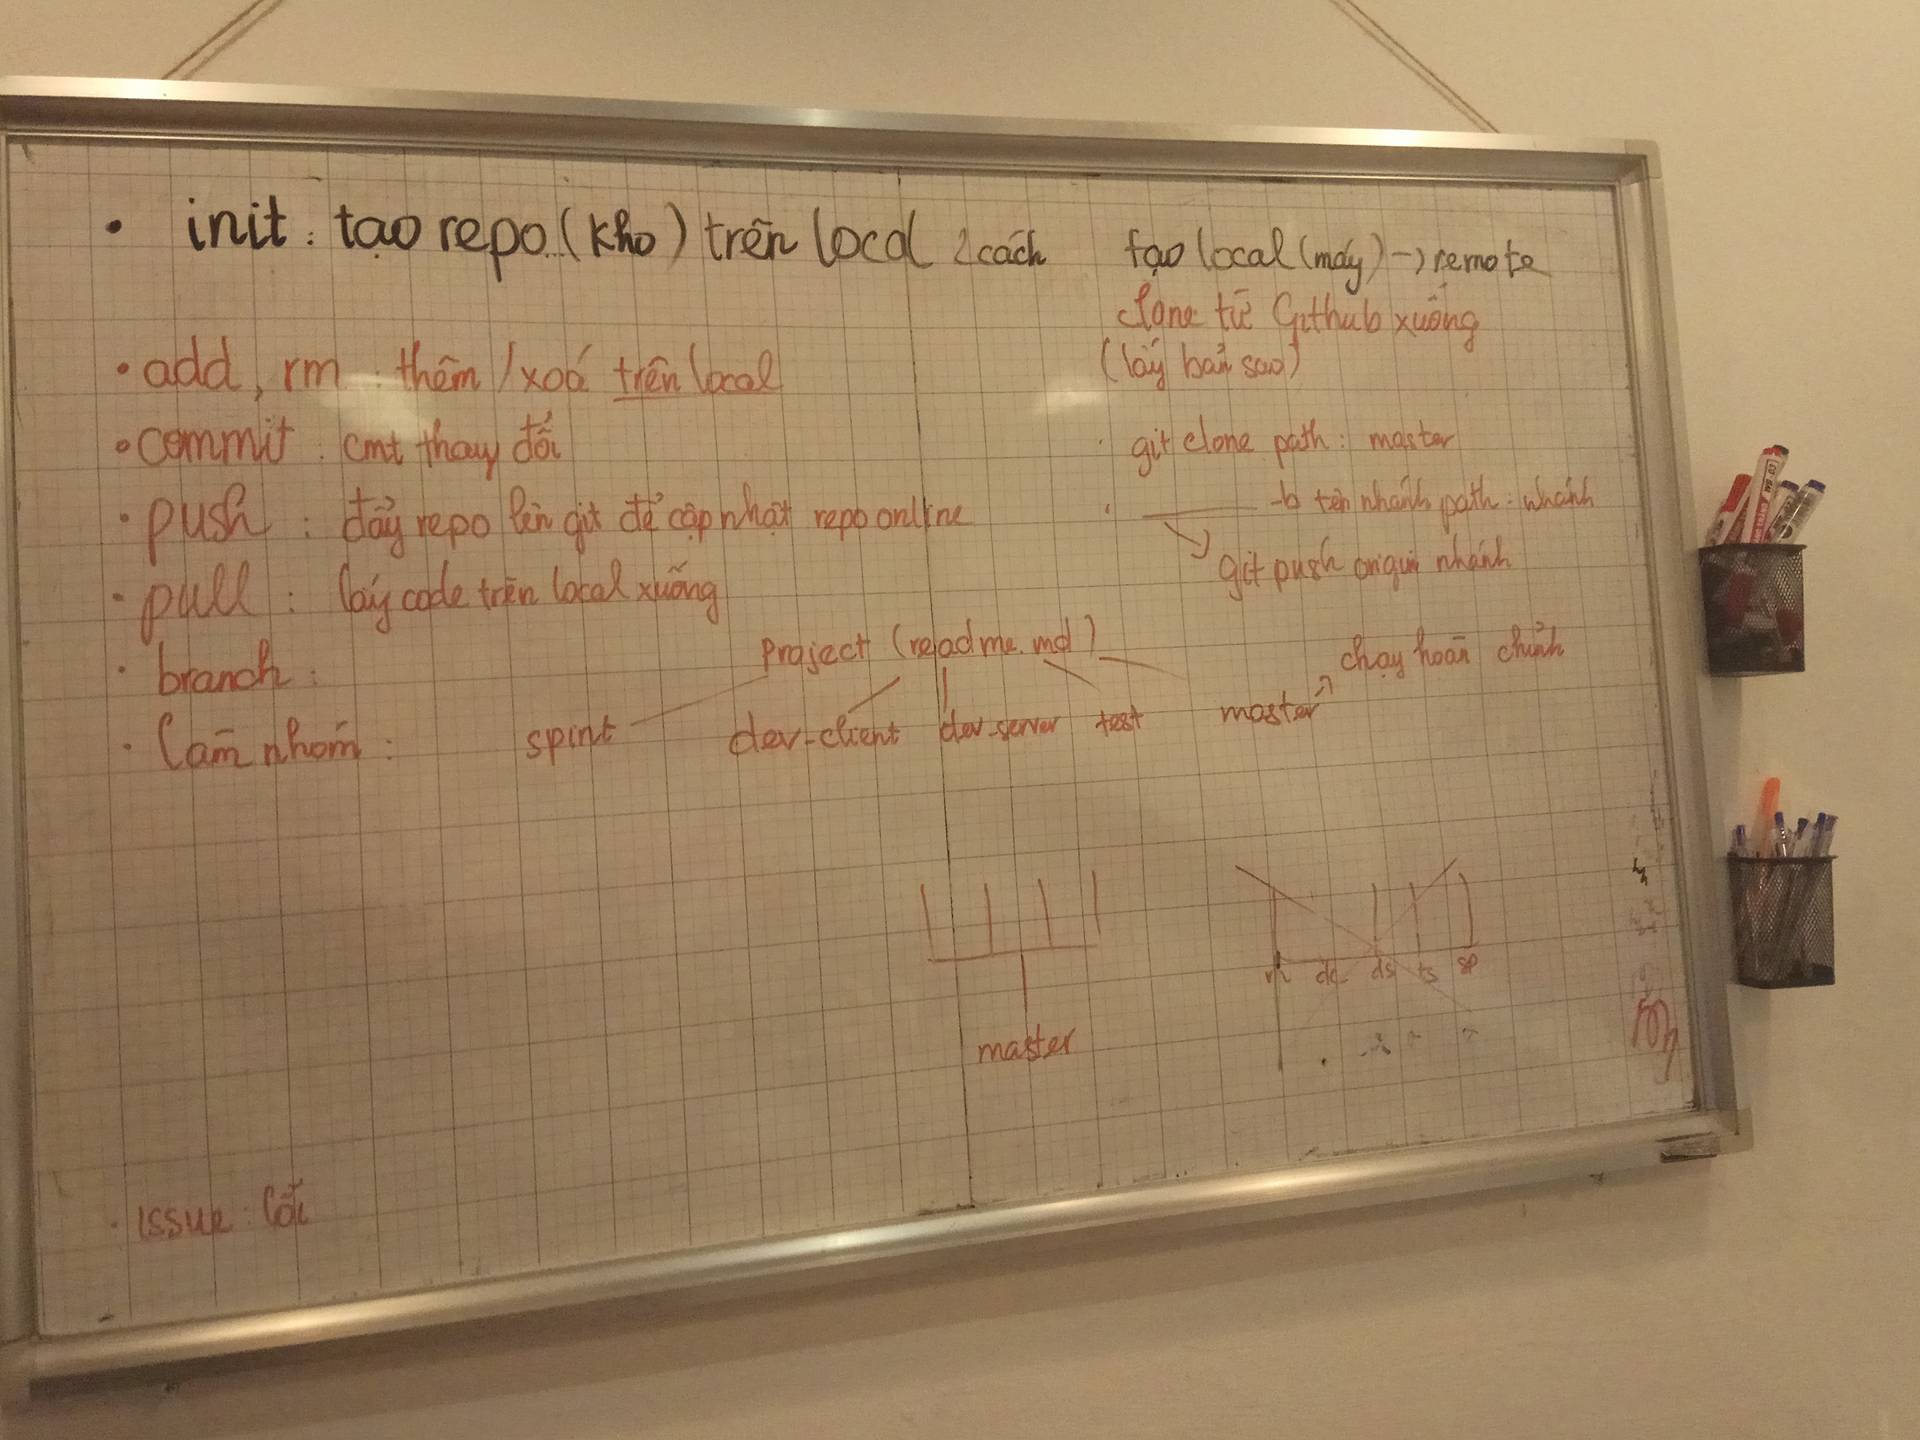 • init : tạo repo (kho) trên local 2 cách
tạo local (máy) -> remote
clone từ Github xuống
(lấy bản sao)
• add, rm : thêm / xoá trên local
• commit : cmt thay đổi
• push : đẩy repo lên git để cập nhật repo online
• pull : lấy code trên local xuống
• git clone path : master
• -b tên nhánh path : nhánh
git push origin nhánh
• branch :
• Làm nhóm :
project (readme.md)
spint dev-client dev-server test master
chạy hoàn chỉnh
master
m dc ds ts sp
• issue : lỗi